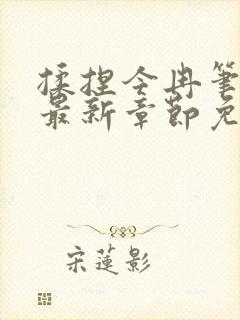 揉捏今冉笔
最新章节免
宋莲影